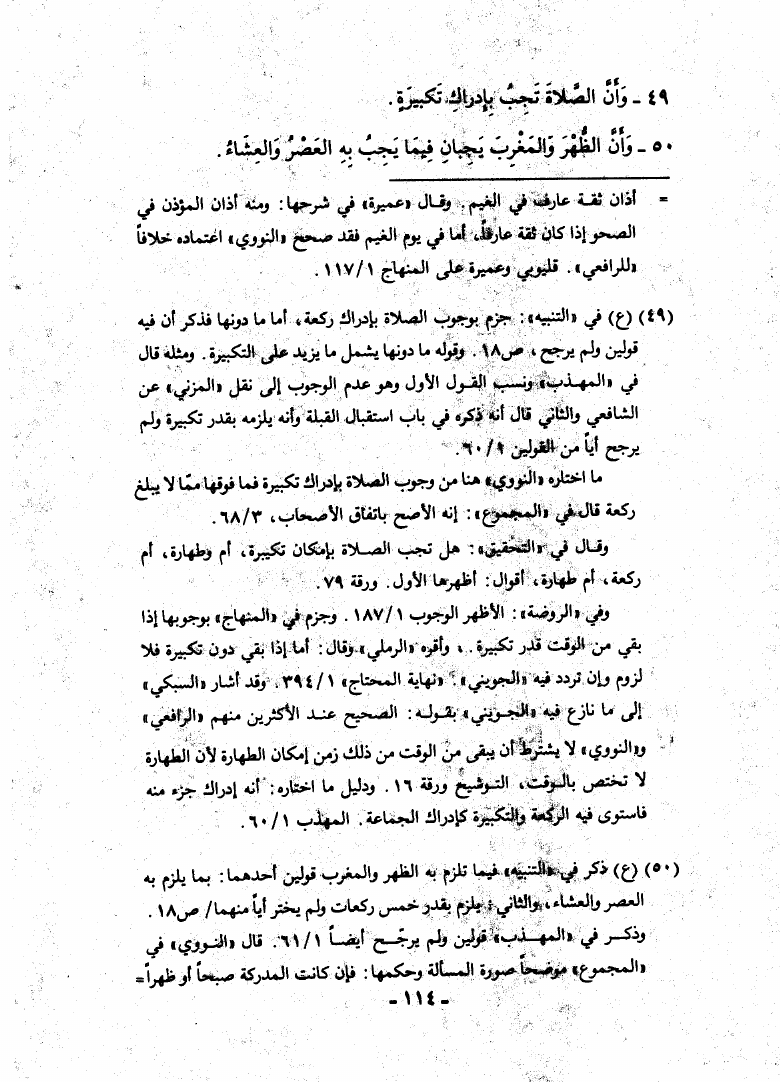 ٤٩ ـ وَأَنَّ الصَّلاةَ تَجِبُ بِإِدراكِ تَكبيرَةٍ.
٥٠ ـ وَأَنَّ الظُّهْرَ وَالمَغْرِبَ يَجِبانِ فِيمَا يَجِبُ بِهِ العَصْرُ وَالعِشَاءُ.
= أذان ثقة عارف في الغيم. وقال «عميرة» في شرحها: ومنه أذان المؤذن في
الصحو إذا كان ثقة عارفاً، أما في يوم الغيم فقد صحح «النووي» اعتماده خلافاً
«للرافعي». قليوبي وعميرة على المنهاج ١١٧/١.
(٤٩) (ع) في «التنبيه»: جزم بوجوب الصلاة بإدراك ركعة، أما ما دونها فذكر أن فيه
قولين ولم يرجح، ص١٨. وقوله ما دونها يشمل ما يزيد على التكبيرة. ومثله قال
في «المهذب» ونسب القول الأول وهو عدم الوجوب إلى نقل «المزني» عن
الشافعي والثاني قال أنه ذكره في باب استقبال القبلة وأنه يلزمه بقدر تكبيرة ولم
يرجح أياً من القولين ٦٠/١.
ما اختاره «النووي» هنا من وجوب الصلاة بإدراك تكبيرة فما فوقها ممّا لا يبلغ
ركعة قال في «المجموع»: إنه الأصح باتفاق الأصحاب، ٦٨/٣.
وقال في «التحقيق»: هل تجب الصلاة بإمكان تكيبرة، أم وطهارة، أم
ركعة، أم طهارة، أقوال: أظهرها الأول. ورقة ٧٩.
وفي «الروضة»: الأظهر الوجوب ١٨٧/١. وجزم في «المنهاج» بوجوبها إذا
بقي من الوقت قدر تكبيرة. ، وأقره «الرملي» وقال: أما إذا بقي دون تكبيرة فلا
لزوم وإن تردد فيه «الجويني». «نهاية المحتاج» ٣٩٤/١. وقد أشار «السبكي»
إلى ما نازع فيه «الجويني» بقوله: الصحيح عند الأكثرين منهم «الرافعي»
و«النووي» لا يشترط أن يبقى من الوقت من ذلك زمن إمكان الطهارة لأن الطهارة
لا تختص بالوقت، التوشيح ورقة ١٦. ودليل ما اختاره: أنه إدراك جزء منه
فاستوى فيه الركعة والتكبيرة كإدراك الجماعة. المهذب ٦٠/١.
(٥٠) (ع) ذكر في «التنبيه» فيما تلزم به الظهر والمغرب قولين أحدهما: بما يلزم به
العصر والعشاء، والثاني: يلزم بقدر خمس ركعات ولم يختر أياً منهما/ ص١٨.
وذكر في «المهذب» قولين ولم يرجّح أيضاً ٦١/١. قال «النووي» في
«المجموع» موضحاً صورة المسألة وحكمها: فإن كانت المدركة صبحاً أو ظهراً=
ـ ١١٤ ـ